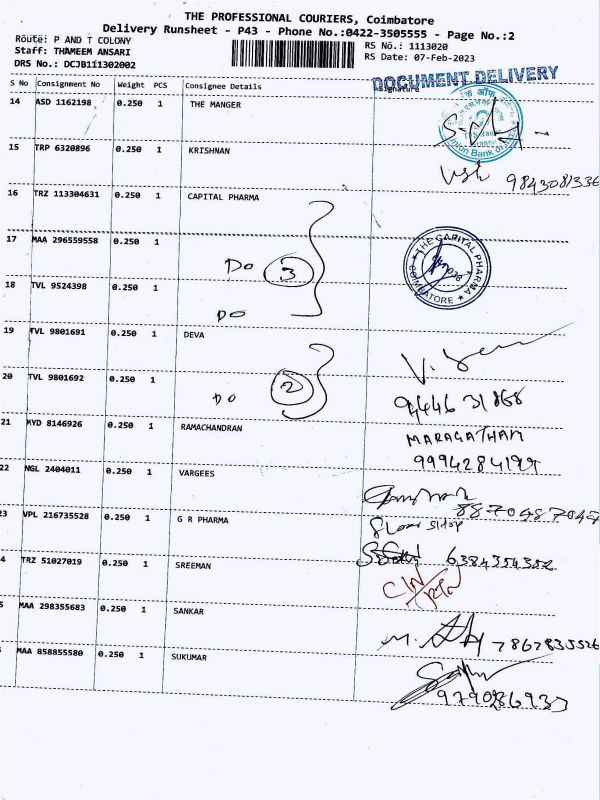 THE PROFESSIONAL COURIERS, Coimbatore
Delivery Runsheet - P43 - Phone No.:0422-3505555 - Page No.:2
Route: P AND T COLONY
RS No.: 1113020
Staff: THAMEEM ANSARI
RS Date: 07-Feb-2023
DRS No.: DCJB111302002
DOCUMENT DELIVERY
S No Consignment No Weight PCS Consignee Details Signature
14 ASD 1162198 0.250 1 THE MANGER
Union Bank of
15 TRP 6320896 0.250 1 KRISHNAN
9843081336
16 TRZ 113304631 0.250 1 CAPITAL PHARMA
17 MAA 296559558 0.250 1
THE CAPITAL PHARMA
COIMBATORE
Do 3
18 TVL 9524398 0.250 1
Do
19 TVL 9801691 0.250 1 DEVA
20 TVL 9801692 0.250 1
Do 2
94446 31868
21 MYD 8146926 0.250 1 RAMACHANDRAN
MARAGATHAM
9994284199
22 NGL 2404011 0.250 1 VARGEES
23 VPL 216735528 0.250 1 G R PHARMA
6384354352
4 TRZ 51027019 0.250 1 SREEMAN
MAA 298355683 0.250 1 SANKAR
7867835526
MAA 858855580 0.250 1 SUKUMAR
9790286937